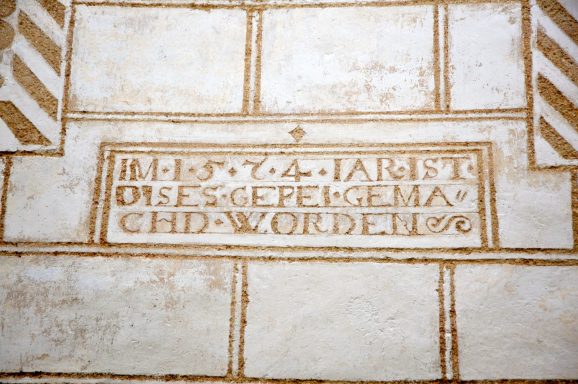 IM · 1 · 5 · 7 · 4 · IAR · IST ·
DISES · GEPEI · GEMA〃
CHD · WORDEN